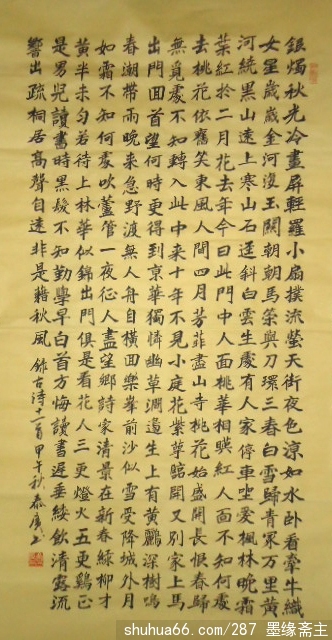 銀燭秋光冷畫屏輕羅小扇撲流螢天街夜色涼如水卧看牽牛織
女星歲歲金河復玉關朝朝馬策與刀環三春白雪歸青冢萬里黄
河繞黑山遠上寒山石徑斜白雲生處有人家停車坐愛楓林晚霜
葉紅於二月花去年今日此門中人面桃華相暎紅人面不知何處
去桃花依舊笑東風人間四月芳菲盡山寺桃花始盛開長恨春歸
無覓處不知轉入此中来十年不見小庭花紫萼臨開又別家上馬
出門回首望何時更得到京華獨憐幽草澗邊生上有黄鸝深樹鳴
春潮帶雨晚来急野渡無人舟自横回樂峯前沙似雪受降城外月
如霜不知何處吹蘆管一夜征人盡望鄉詩家清景在新春綠柳才
黄半未匀若待上林華似錦出門俱是看花人三更燈火五更鷄正
是男兒讀書時黑髮不知勤學早白首方悔讀書遲垂緌飲清露流
響出疏桐居高聲自遠非是藉秋風 錄古詩十一首甲午秋
shuhua66.com/287 墨缘斋主